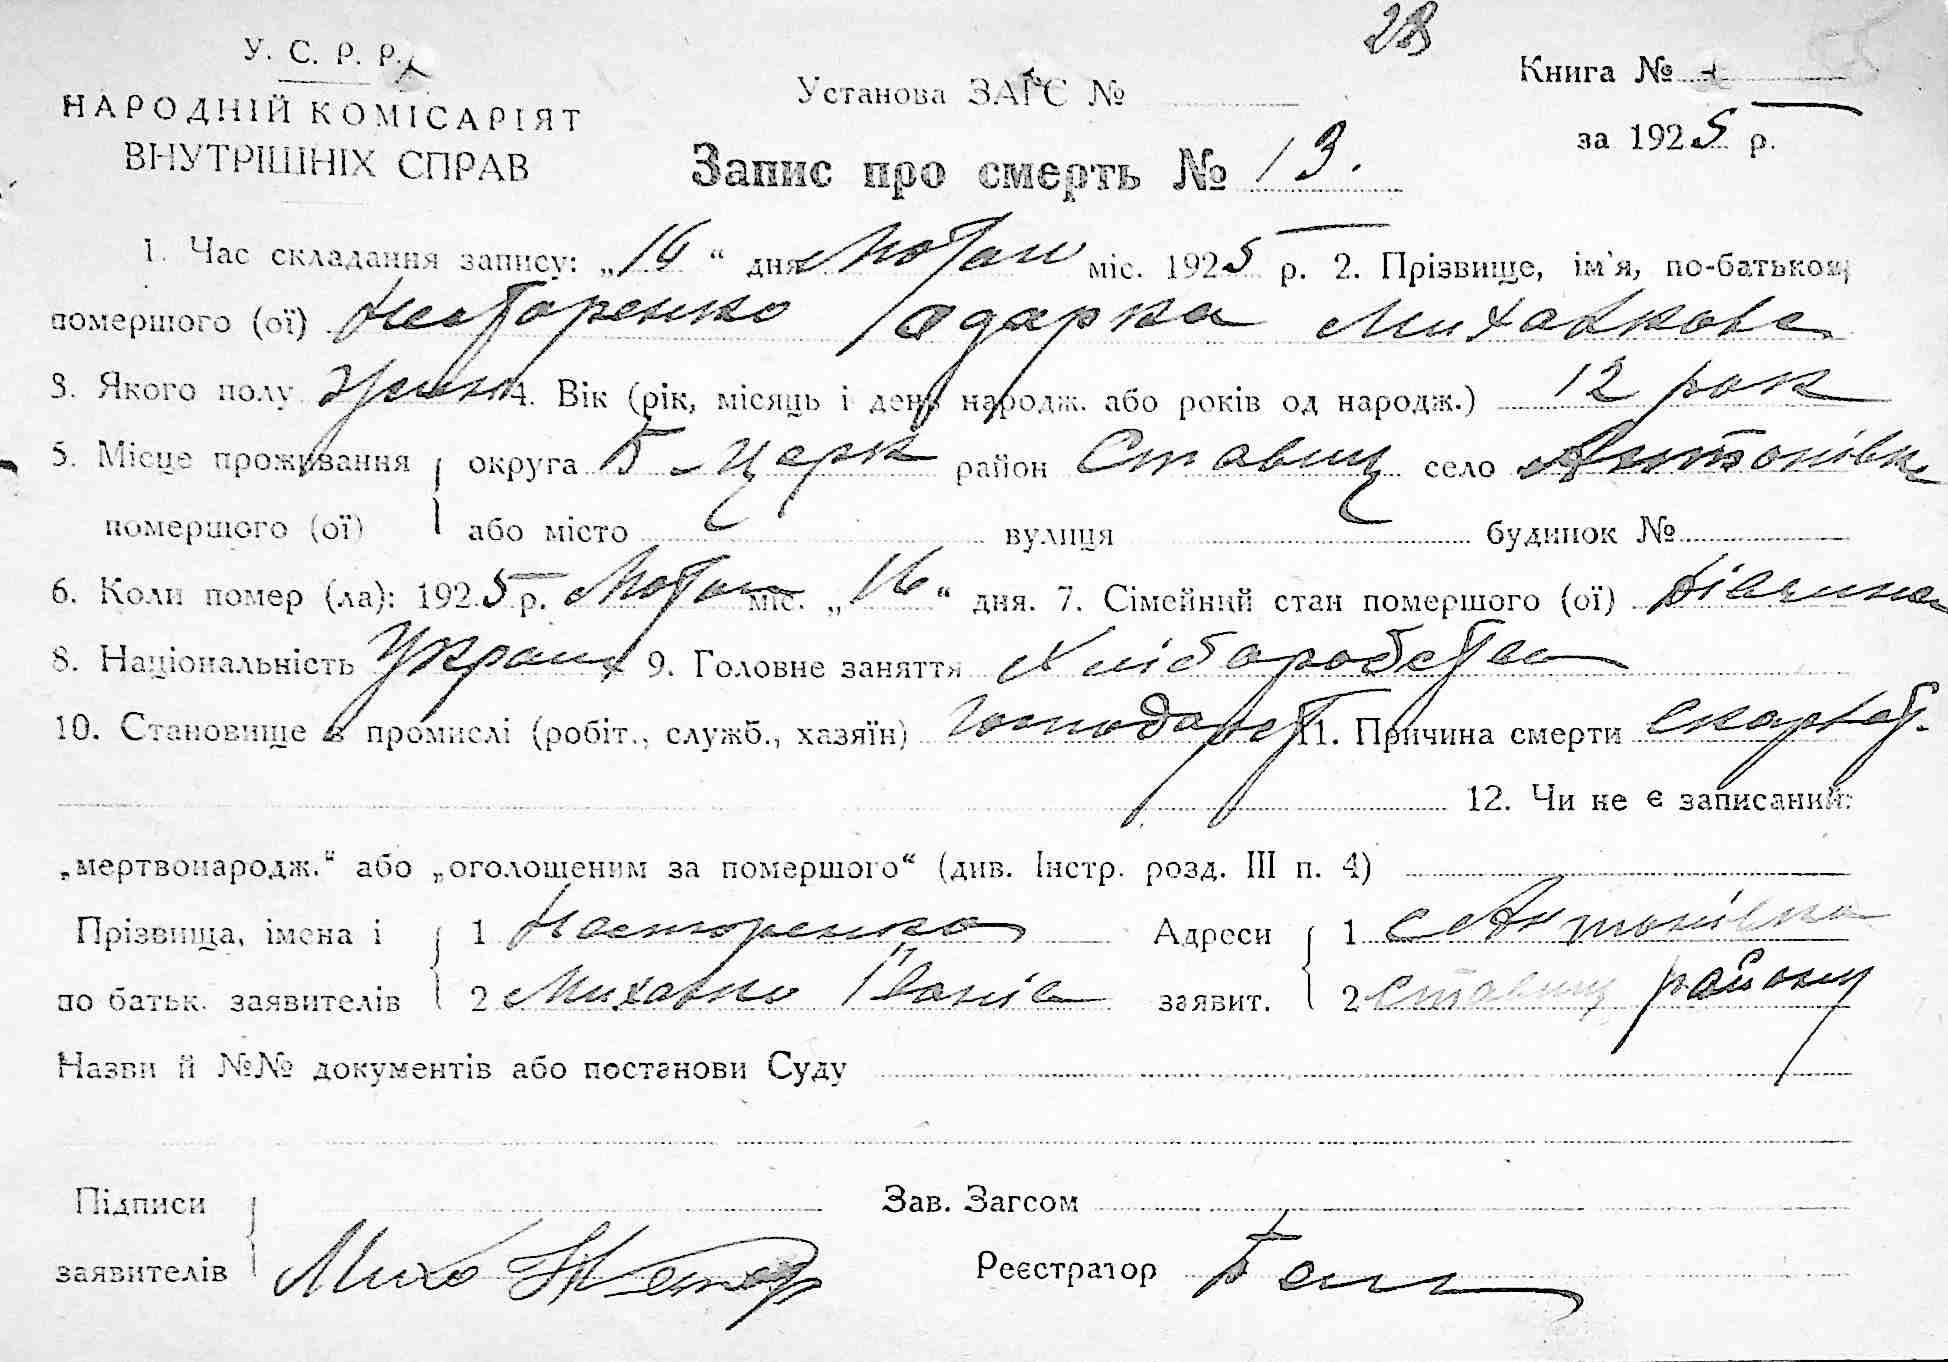 28
У. С. Р. Р.
НАРОДНІЙ КОМІСАРІЯТ
ВНУТРІШНІХ СПРАВ
Установа ЗАГС №
Книга №
за 1925 р.
Запис про смерть № 13.
1. Час складання запису: „16“ дня Лютаи міс. 1925 р. 2. Прізвище, ім'я, по-батькові
помершого (ої) Несторенко Одарка Михалкова
3. Якого полу жін 4. Вік (рік, місяць і день народж. або років од народж.) 12 рок
5. Місце проживання округа Б Церк район Ставищ село Антонівка
помершого (ої) або місто вулиця будинок №
6. Коли помер (ла): 1925 р. міс. „16“ дня. 7. Сімейний стан помершого (ої) Дівчина
8. Національність Украин 9. Головне заняття Хліборобства
10. Становище в промислі (робіт., служб., хазяїн) господарст 11. Причина смерти скарлат.
12. Чи не є записаний:
„мертвонародж.“ або „оголошеним за помершого“ (див. Інстр. розд. III п. 4)
Прізвища, імена і 1 Несторенко Адреси 1 с Антонівка
по батьк. заявителів 2 Михалко заявит. 2 Ставищ району
Назви й №№ документів або постанови Суду
Підписи Зав. Загсом
заявителів Миха Нестор Реєстратор